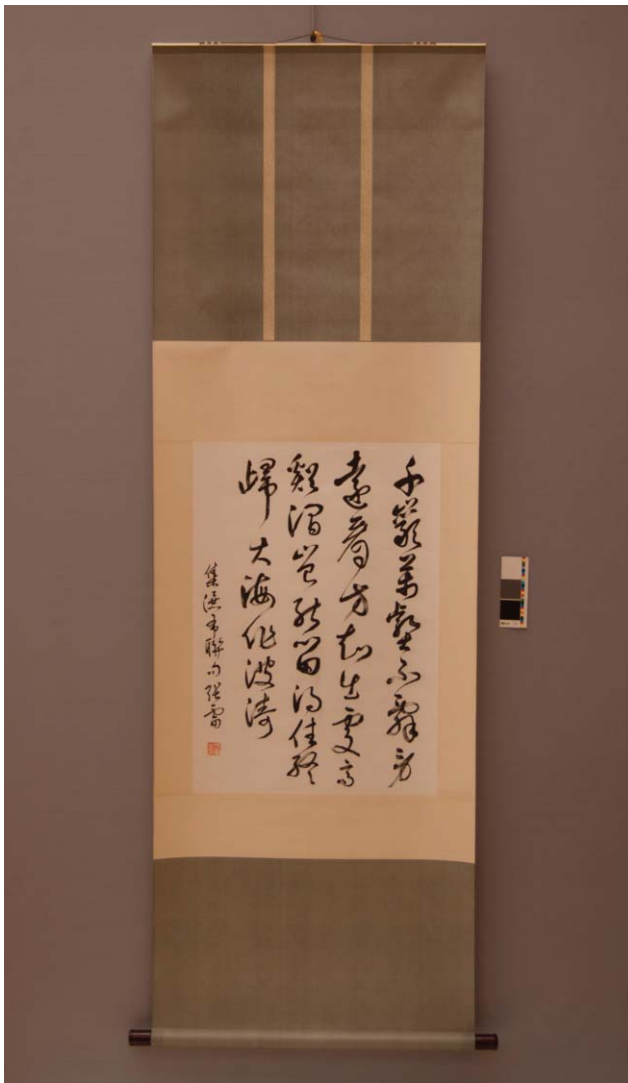 千巖萬壑不辭勞
遠看方知出處高
谿澗豈能留得住終
歸大海作波濤
集瀑布聯句張